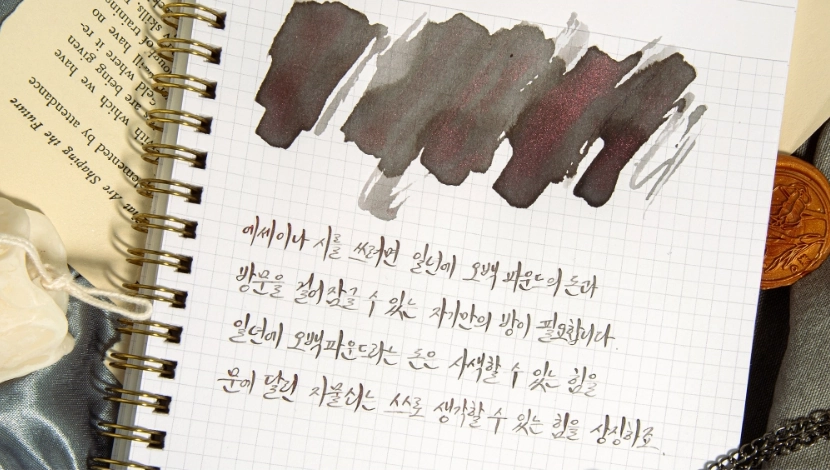 with which we have
are being given
eld where it re-
will have no
of training
skills.
hat Are Shaping the Future
emented by attendance
에세이나 시를 쓰려면 일년에 오백 파운드의 돈과
방문을 걸어 잠글 수 있는 자기만의 방이 필요합니다.
일년에 오백파운드라는 돈은 사색할 수 있는 힘을
문에 달린 자물쇠는 스스로 생각할 수 있는 힘을 상징하죠.